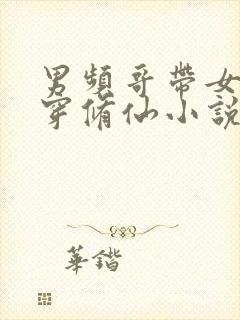 男頻哥帶女
穿脩仙小說
華鍇